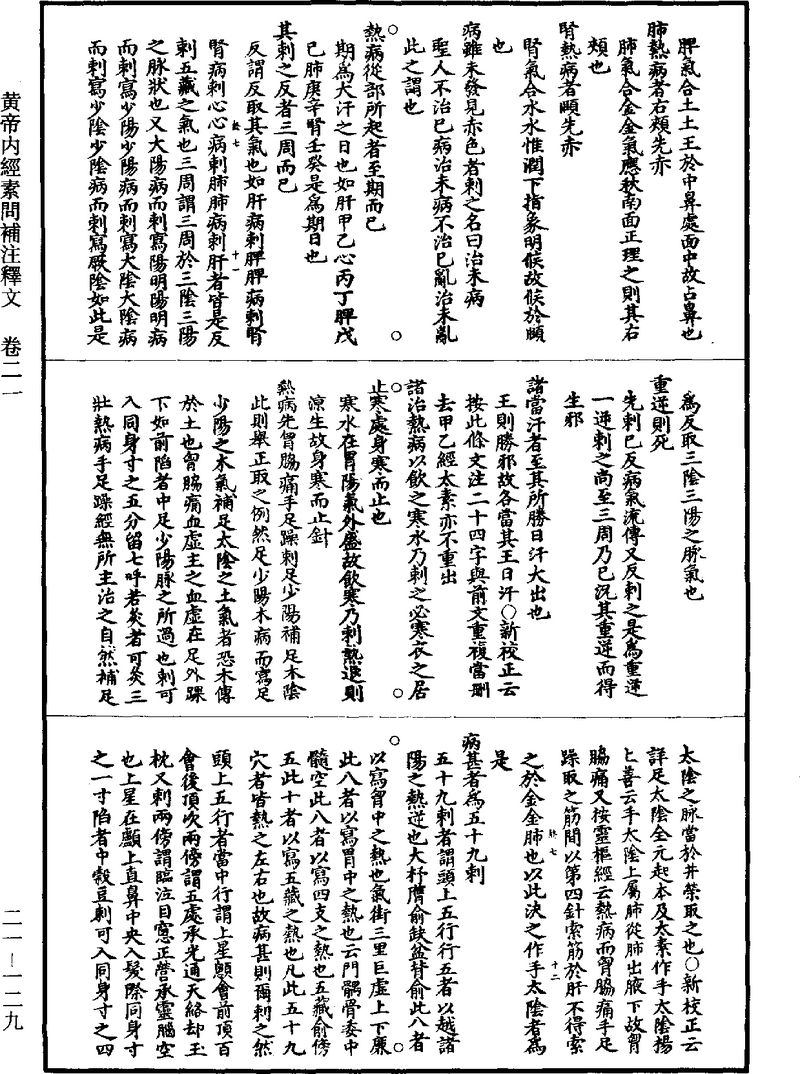 黄帝内經素問補注釋文　卷二一
二一－一二九
脾氣合土土王於中鼻處面中故占鼻也
肺熱病者右頰先赤
肺氣合金金氣應秋南面正理之則其右
頰也
腎熱病者頤先赤
腎氣合水水惟潤下指象明候故候於頤
也
病雖未發見赤色者刺之名曰治未病
聖人不治已病治未病不治已亂治未亂
此之謂也
熱病從部所起者至期而已
期爲大汗之日也如肝甲乙心丙丁脾戊
己肺庚辛腎壬癸是爲期日也
其刺之反者三周而已
反謂反取其氣也如肝病刺脾脾病刺腎
腎病刺心心病刺肺肺病刺肝者皆是反
刺五藏之氣也三周謂三周於三陰三陽
之脉狀也又太陽病而刺寫陽明陽明病
而刺寫少陽少陽病而刺寫太陰太陰病
而刺寫少陰少陰病而刺寫厥陰如此是
爲反取三陰三陽之脉氣也
重逆則死
先刺已反病氣流傳又反刺之是爲重逆
一逆刺之尚至三周乃已況其重逆而得
生邪
諸當汗者至其所勝日汗大出也
王則勝邪故各當其王日汗○新校正云
按此條文注二十四字與前文重複當刪
去甲乙經太素亦不重出
諸治熱病以飲之寒水乃刺之必寒衣之居
止寒處身寒而止也
寒水在胃陽氣外盛故飲寒乃刺熱退則
涼生故身寒而止針
熱病先胷脇痛手足躁刺足少陽補足太陰
此則舉正取之例然足少陽木病而寫足
少陽之木氣補足太陰之土氣者恐木傳
於土也胷脇痛血虛主之血虛在足外踝
下如前陷者中足少陽脉之所過也刺可
入同身寸之五分留七呼若灸者可灸三
壯熱病手足躁經無所主治之自然補足
太陰之脉當於井滎取之也○新校正云
詳足太陰全元起本及太素作手太陰楊
上善云手太陰上屬肺從肺出腋下故胷
脇痛又按靈樞經云熱病而胷脇痛手足
躁取之筋間以第四針索筋於肝不得索
之於金金肺也以此決之作手太陰者爲
是
病甚者爲五十九刺
五十九刺者謂頭上五行行五者以越諸
陽之熱逆也大杼膺俞缺盆背俞此八者
以寫胷中之熱也氣街三里巨虛上下廉
此八者以寫胃中之熱也云門髃骨委中
髓空此八者以寫四支之熱也五藏俞傍
五此十者以寫五藏之熱也凡此五十九
穴者皆熱之左右也故病甚則爾刺之然
頭上五行者當中行謂上星顖會前頂百
會後頂次兩傍謂五處承光通天絡却玉
枕又刺兩傍謂臨泣目窻正營承靈腦空
也上星在顱上直鼻中央入髮際同身寸
之一寸陷者中容豆刺可入同身寸之四